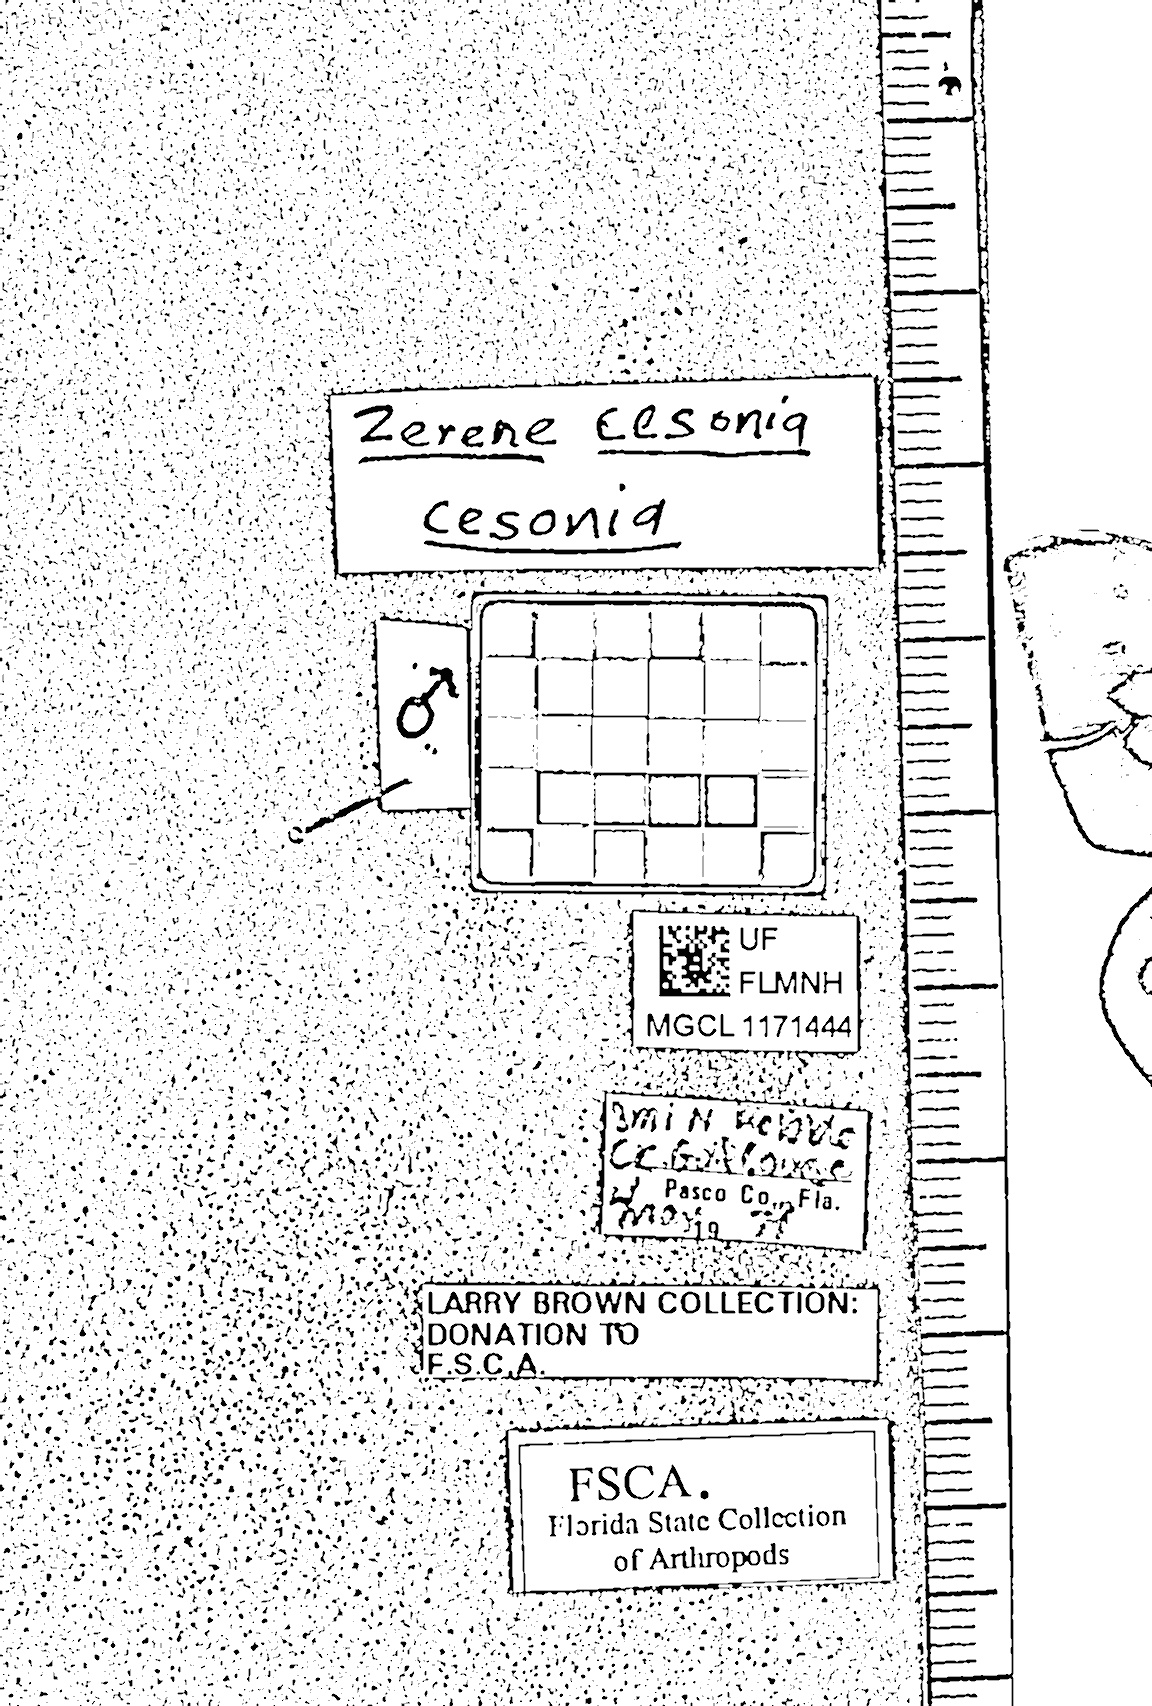 Zerene cesonia
cesonia
♂
UF
FLMNH
MGCL 1171444
3mi N
Pasco Co., Fla.
May 19
LARRY BROWN COLLECTION:
DONATION TO
F.S.C.A.
FSCA.
Florida State Collection
of Arthropods